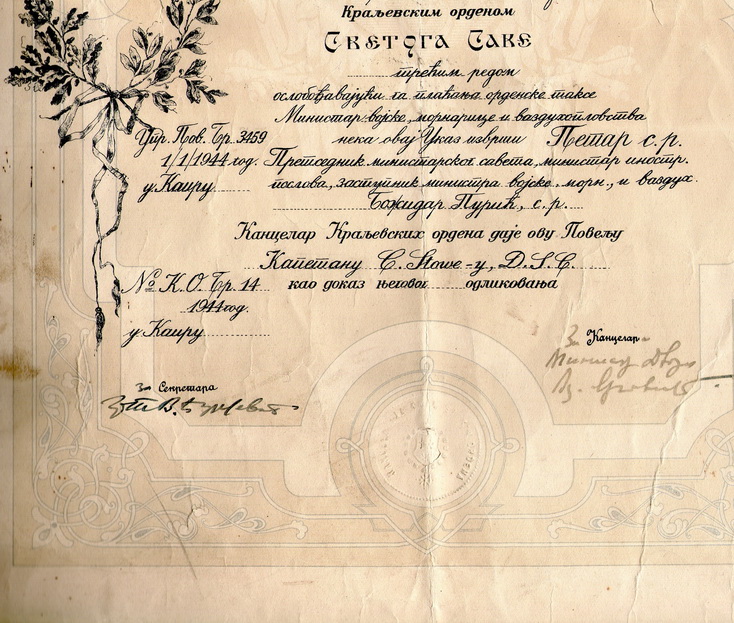 Краљевским орденом
Светога Саве
трећим редом
ослобођавајући га плаћања орденске таксе
Министар војске, морнарице и ваздухопловства
Упр. Пов. Бр. 3459 нека овај Указ изврши Петар с.р.
1/1/1944 год. Претседник министарског савета, министар иностр.
у Каиру послова, заступник министра војске, морн., и ваздух.
Божидар Пурић, с.р.
Канцелар Краљевских ордена даје ову Повељу
Капетану C. Stowe-у, D.S.C.
№ К.О. Бр. 14 као доказ његовог одликовања
1944 год.
у Каиру
За Канцелара
Министар Двора
За Секретара